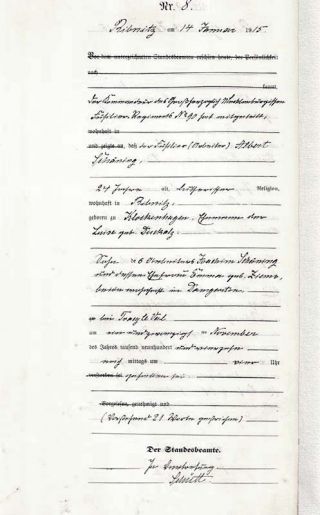 Nr. 8.
Ribnitz am 14 Januar 1915.
Vor dem unterzeichneten Standesbeamten erschien heute, der Persönlichkeit
nach
kannt,
der Kommandeur des Großherzoglich Mecklenburgischen
Füsilier-Regiments No 90 hat mitgeteilt,
wohnhaft in
und zeigte an, daß der Füsilier (Arbeiter) Albert
Schöning,
24 Jahre alt, lutherischer Religion,
wohnhaft in Ribnitz,
geboren zu Klockenhagen, Ehemann der
Luise geb.
Sohn des Arbeiters Joachim Schöning
und dessen Ehefrau Emma geb.
beide wohnhaft in Damgarten
bei Tracy le Val
am vier und zwanzigsten November
des Jahres tausend neunhundert und vierzehn
nach mittags um vier Uhr
verstorben sei gefallen sei
Vorgelesen, genehmigt und
(Vorstehend 21 Worte gestrichen)
Der Standesbeamte.
In Vertretung